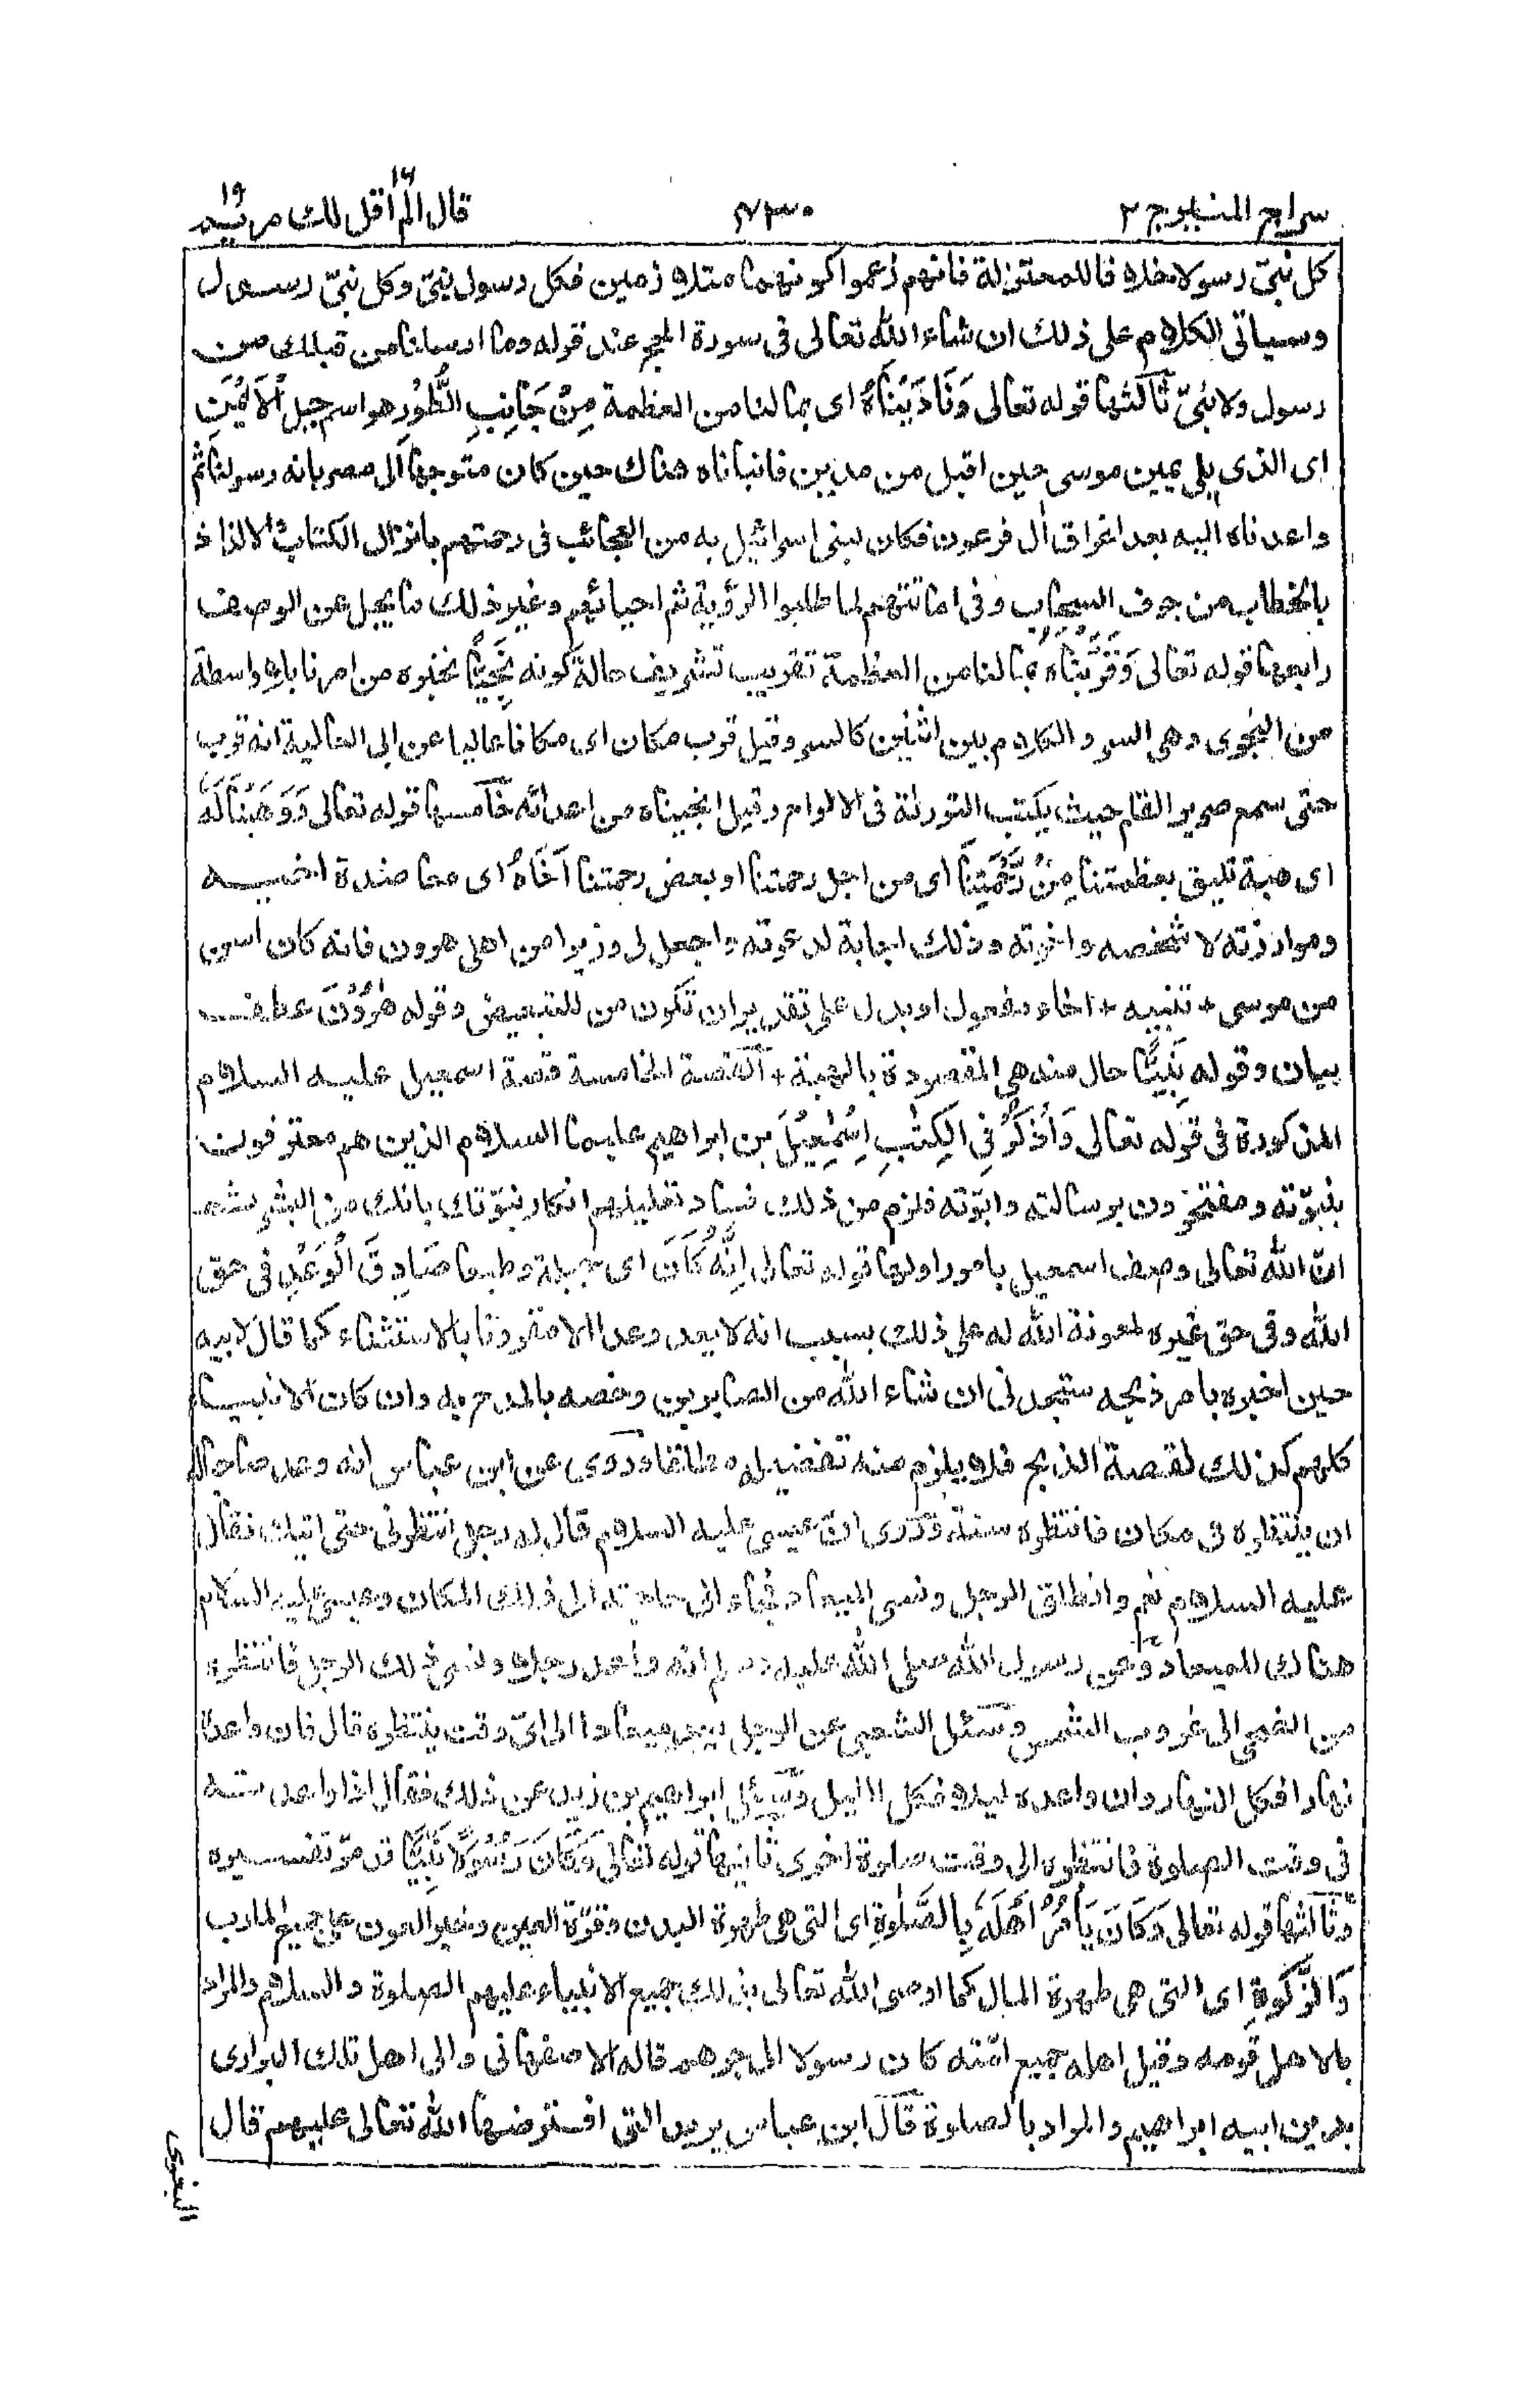 سراج المنير ج ٢
٧٣٠
قال الم اقل لك ١٦ مريم ١٩
كل نبيّ رسولا خلافا للمعتزلة فانهم زعموا كونهما متلازمين فكل رسول نبيّ وكل نبيّ رسول
وسيأتي الكلام على ذلك ان شاء الله تعالى في سورة الحج عند قوله وما ارسلنا من قبلك من
رسول ولا نبيّ ثالثها قوله تعالى وَنَادَيْنَاهُ اى بما لنا من العظمة مِنْ جَانِبِ الطُّورِ هو اسم جبل الْاَيْمَنِ
اى الذى يلى يمين موسى حين اقبل من مدين فانبأناه هناك حين كان متوجها الى مصر بانه رسولنا ثم
واعدناه اليه بعد اغراق آل فرعون فكان لبنى اسرائيل به من العجائب فى رحمتهم بانزال الكتاب والالذاذ
بالخطاب من جوف السحاب وفى اماتتهم لما طلبوا الرؤية ثم احيائهم وغير ذلك ما يجل عن الوصف
رابعها قوله تعالى وَقَرَّبْنَاهُ بما لنا من العظمة تقريب تشريف حالة كونه نَجِيًّا نخبره من امرنا بلا واسطة
من النجوى وهى السر والكلام بين اثنين كالسر وقيل قرب مكان اى مكانا عاليا عن ابى العالية انه قرب
حتى سمع صرير القلم حيث يكتب التورىة فى الالواح وقيل انجيناه من اعدائه خامسها قوله تعالى وَوَهَبْنَا لَهُ
اى هبة تليق بعظمتنا مِنْ رَّحْمَتِنَا اى من اجل رحمتنا او بعض رحمتنا اَخَاهُ اى معاضدة اخيه
وموازرته لا شخصه واخوته وذلك اجابة لدعوته واجعل لى وزيرا من اهلى هرون فانه كان اسن
من موسى + تنبيه + اخاه مفعول او بدل على تقدير ان تكون من للتبعيض وقوله هٰرُوْنَ عطف
بيان وقوله نَبِيًّا حال منه هى المقصودة بالهبة + القصة الخامسة قصة اسمعيل عليه السلام
المذكورة فى قوله تعالى وَاذْكُرْ فِى الْكِتٰبِ اِسْمٰعِيْلَ بن ابراهيم عليهما السلام الذين هم معترفون
بنبوّته ومفتخرون برسالته وابوّته فلزم من ذلك فساد تعليلهم انكار نبوّتك بانك من البشر ثم
انّ الله تعالى وصف اسمعيل بامور اولها قوله تعالى اِنَّهُ كَانَ اى جبلة وطبعا صَادِقَ الْوَعْدِ فى حق
الله وفى حق غيره لمعونة الله له على ذلك بسبب انه لا يعد وعدا الا مقرونا بالاستثناء كما قال لابيه
حين اخبره بامر ذبحه ستجدنى ان شاء الله من الصابرين وخصه بالمدح به وان كان الانبياء
كلهم كذلك لقصة الذبح فلا يلزم منه تفضيله مطلقا وروى عن ابن عباس انه وعد صاحبا له
ان ينتظره فى مكان فانتظره سنة وروى انّ عيسى عليه السلام قال له رجل انتظرنى حتى اتيك فقال
عليه السلام نعم وانطلق الرجل ونسى الميعاد فجاء الى حاجته الى ذلك المكان وعيسى عليه السلام
هنالك للميعاد وعن رسول الله صلى الله عليه وسلم انه واعد رجلا ونسى ذلك الرجل فانتظره
من الضحى الى غروب الشمس وسئل الشعبى عن الرجل يعد ميعادا الى اىّ وقت ينتظره قال فان واعده
نهارا فكل النهار وان واعده ليلا فكل الليل وسئل ابراهيم بن زيد عن ذلك فقال اذا واعدته
فى وقت الصلوة فانتظره الى وقت صلوة اخرى ثانيها قوله تعالى وَكَانَ رَسُوْلًا نَّبِيًّا قد مرّ تفسيره
وثالثها قوله تعالى وَكَانَ يَأْمُرُ اَهْلَهٗ بِالصَّلٰوةِ اى التى هى طهرة البدن وقرّة العين وخير العون على جميع المآرب
وَالزَّكٰوةِ اى التى هى طهرة المال كما اوصى الله تعالى بذلك جميع الانبياء عليهم الصلوة والسلام والمراد
بالاهل قومه وقيل اهله جميع امّته كان رسولا الى جرهم قاله الاصفهانى والى اهل تلك البوادى
بدين ابيه ابراهيم والمراد بالصلوة قال ابن عباس يريد التى افترضها الله تعالى عليهم قال
البغوى